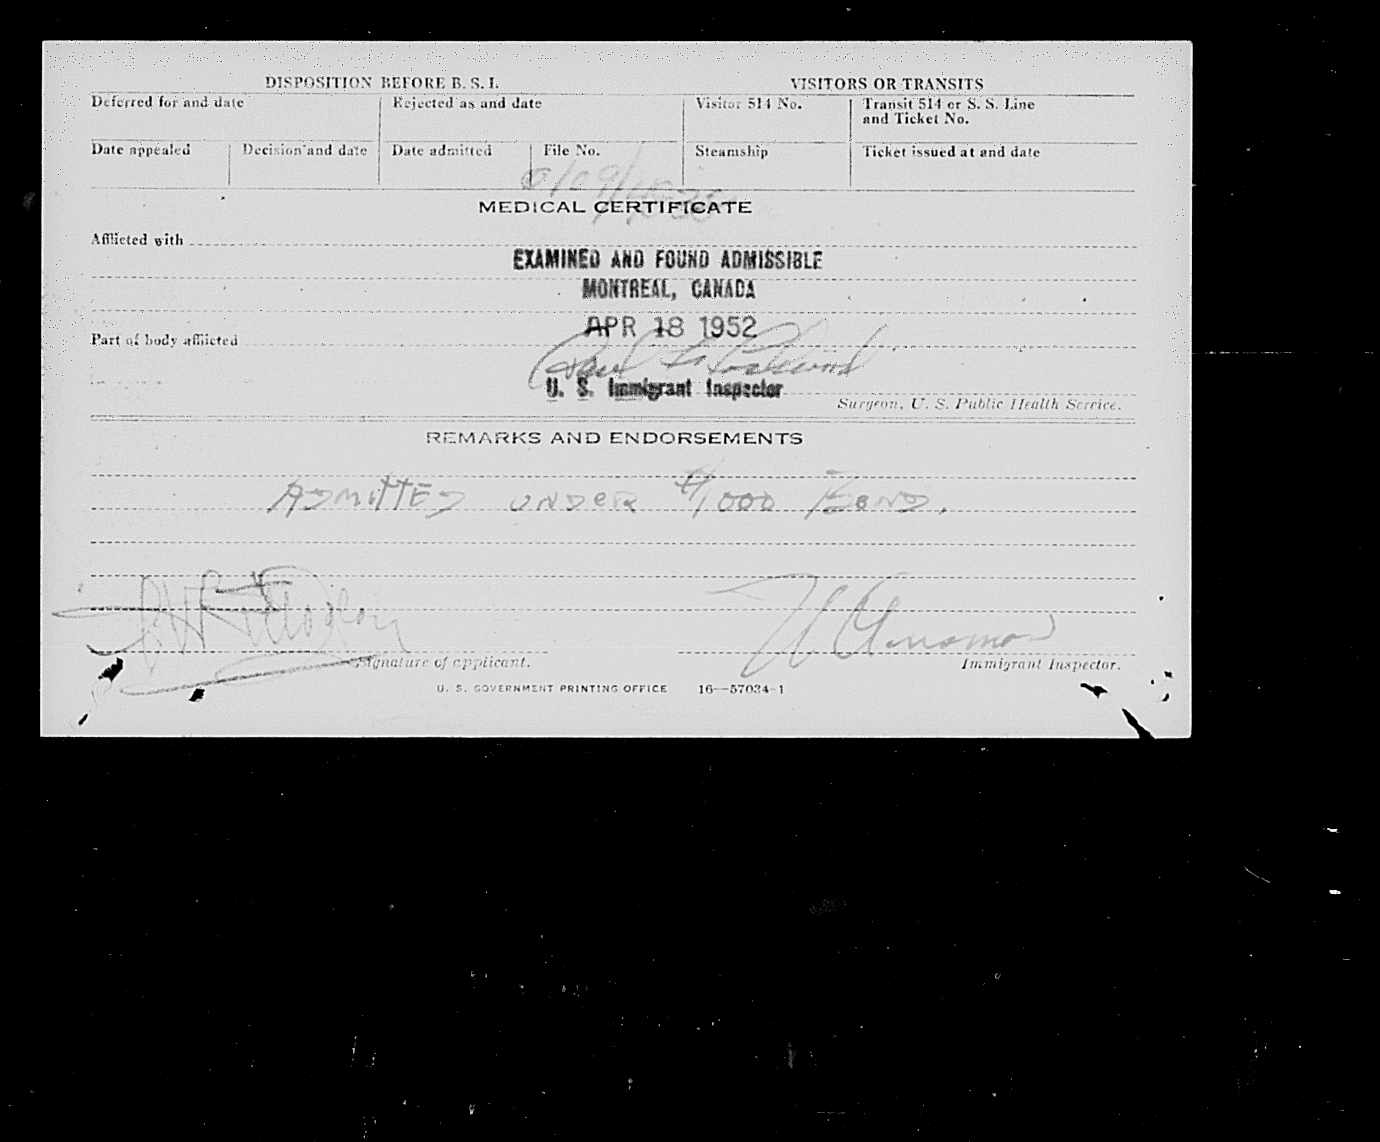 DISPOSITION BEFORE B. S. I.
VISITORS OR TRANSITS
Deferred for and date
Rejected as and date
Visitor 514 No.
Transit 514 or S. S. Line
and Ticket No.
Date appealed
Decision and date
Date admitted
File No.
Steamship
Ticket issued at and date
MEDICAL CERTIFICATE
Afflicted with
EXAMINED AND FOUND ADMISSIBLE
MONTREAL, CANADA
APR 18 1952
Part of body afflicted
U. S. Immigrant Inspector
Surgeon, U. S. Public Health Service.
REMARKS AND ENDORSEMENTS
ADMITTED UNDER $1000 BOND.
Signature of applicant.
Immigrant Inspector.
U. S. GOVERNMENT PRINTING OFFICE 16—57034-1